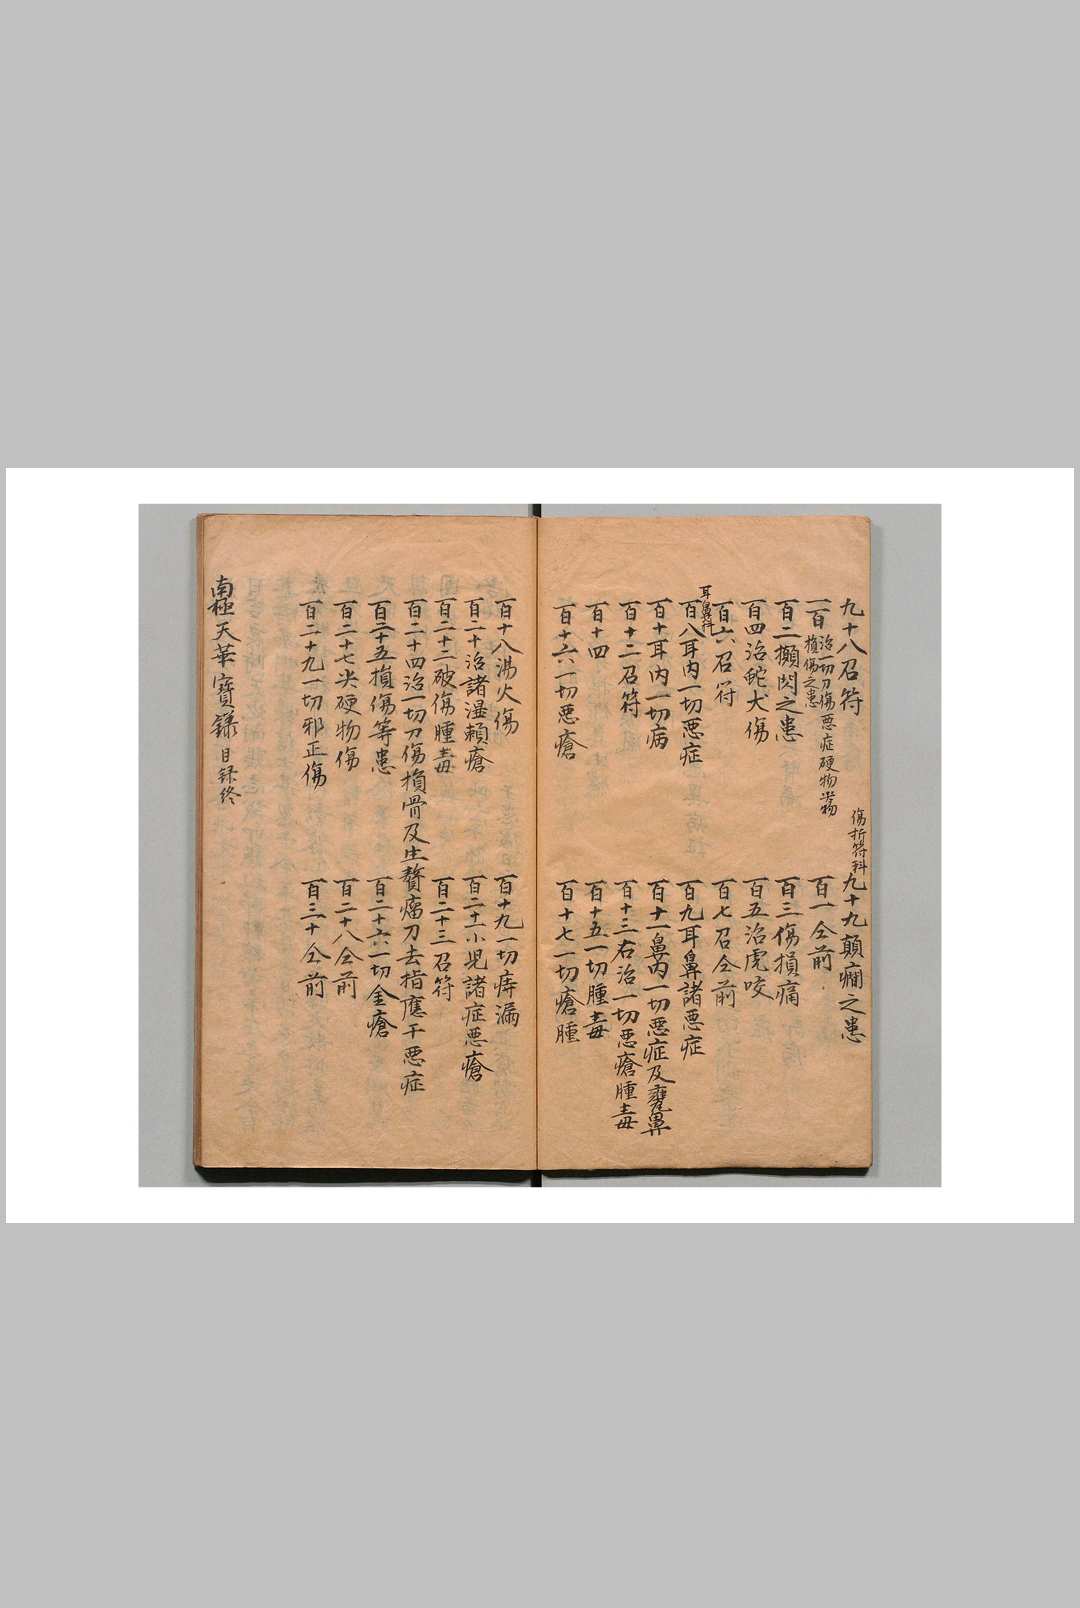 九十八召符
傷折符科
九十九顛癇之患
一百治一切刀傷惡症硬物當物
損傷之患
百一仝前
百二攧閃之患
百三傷損痛
百四治蛇犬傷
百五治虎咬
百六召符
百七召仝前
耳鼻科
百八耳內一切惡症
百九耳鼻諸惡症
百十耳內一切病
百十一鼻內一切惡症及齆鼻
百十二召符
百十三右治一切惡瘡腫毒
百十四
百十五一切腫毒
百十六一切惡瘡
百十七一切瘡腫
百十八湯火傷
百十九一切痔漏
百二十治諸濕頼瘡
百二十一小児諸症惡瘡
百二十二破傷腫毒
百二十三召符
百二十四治一切刀傷損骨及生贅瘤刀去指應干惡症
百二十五損傷等患
百二十六一切金瘡
百二十七尖硬物傷
百二十八仝前
百二十九一切邪正傷
百三十仝前
南極天華寶録目録終